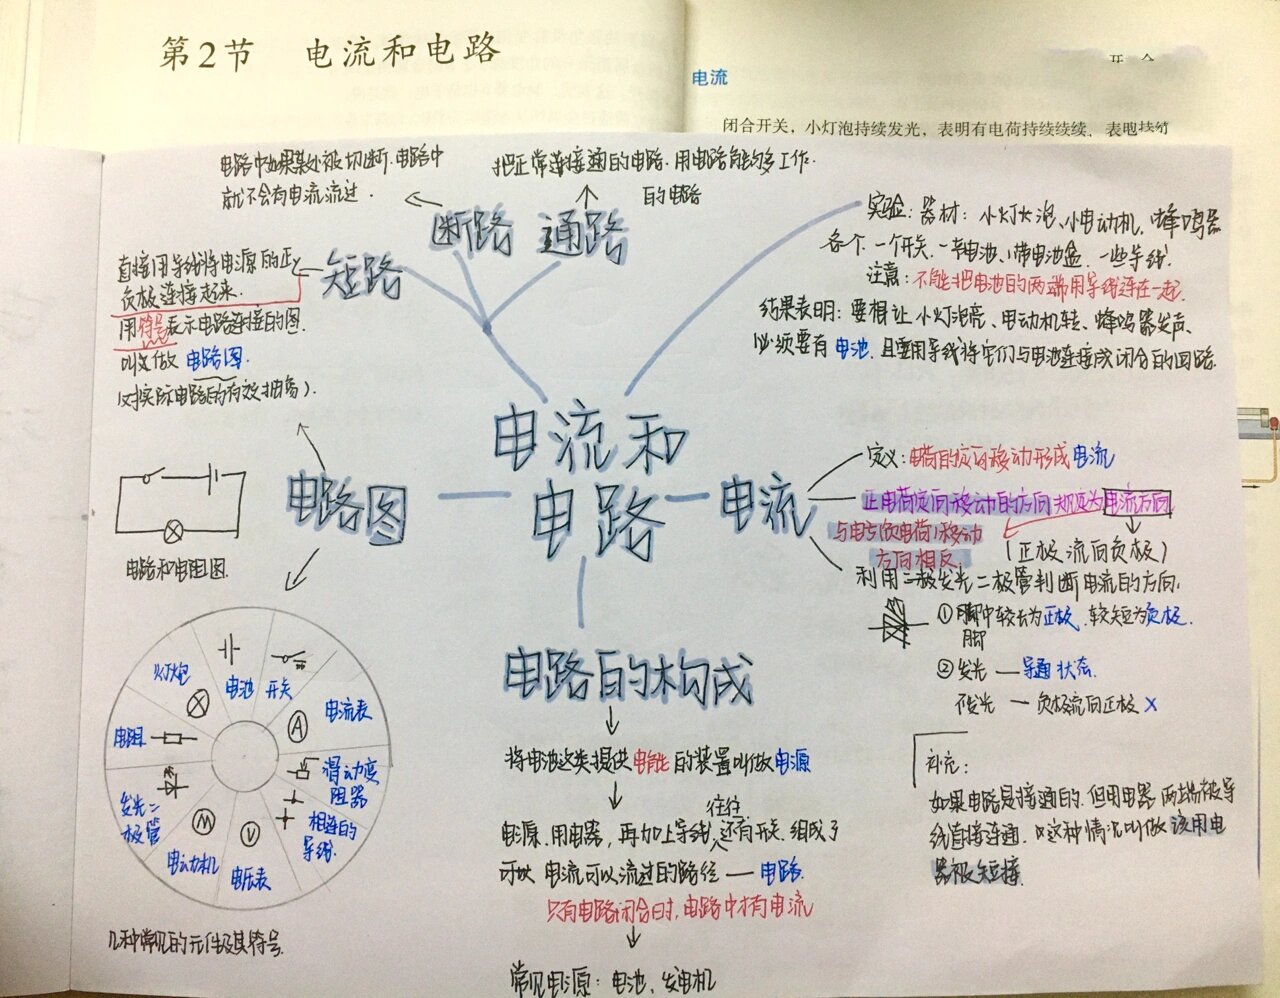 第2节 电流和电路
电流
闭合开关，小灯泡持续发光，表明有电荷持续
电路中如果某处被切断.电路中
就不会有电流流过.
断路
把正常连接通的电路.用电路能够多工作.
的电路
通路
短路
直接用导线将电源的正
负极连接起来.
用符号表示电路连接的图.
叫做 电路图.
(对实际电路的有效抽象).
实验: 器材: 小灯泡、小电动机、蜂鸣器
各个.一个开关.一节电池、1带电池盒.一些导线.
注意: 不能把电池的两端用导线连在一起.
结果表明: 要想让小灯泡亮、电动机转、蜂鸣器发声、
必须要有 电池. 且要用导线将它们与电池连接成闭合的回路.
电流和
电路
电路图
电路和电阻图.
灯泡
电池
开关
电流表
A
滑动变
阻器
相连的
导线.
V
电压表
M
电动机
发光二
极管
电阻
几种常见的元件及其符号.
电流
定义: 电荷的定向移动形成电流
正电荷定向移动的方向规定为电流方向
与电子(负电荷)移动
方向相反.
(正极流向负极)
利用二极发光二极管判断电流的方向.
① 脚中较长为正极.较短为负极.
脚
② 发光 — 导通状态.
— 负极流向正极 X
补充:
如果电路是接通的.但用电器两端被导
线直接连通.这种情况叫做 该用电
器被短接.
电路的构成
将电池这类提供电能的装置叫做电源
往往
电源.用电器,再加上导线,还有开关.组成了
可以 电流可以流过的路径 — 电路.
只有电路闭合时,电路中才有电流
常见电源: 电池、发电机